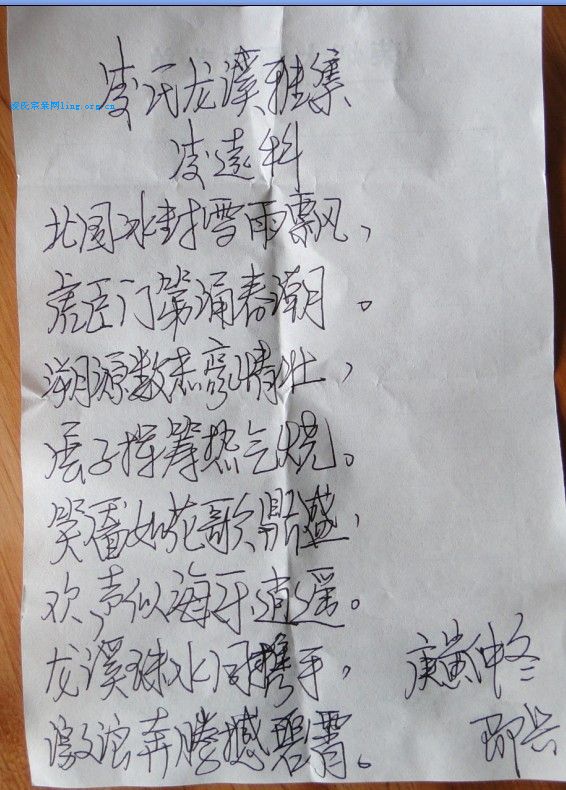 凌氏龙溪雅集
凌氏宗亲网ling.org.cn
凌远科
北国冰封雪雨飘，
虎臣门第涌春潮。
溯源数杰豪情壮，
挥筹热气烧。
笑靥如花歌鼎盛，
欢声似海乐逍遥。
龙溪珠水同携手，
激浪奔腾撼碧霄。
庚寅仲冬
即兴